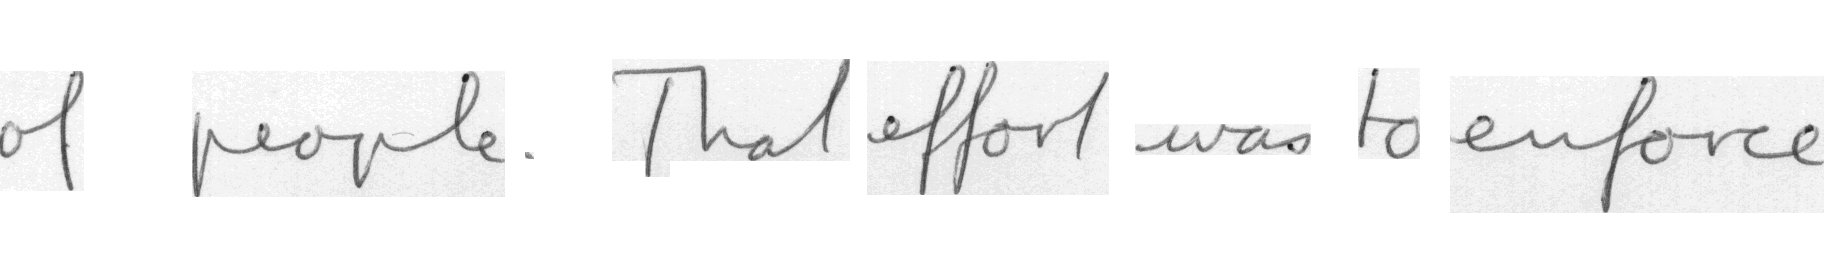 of people. That effort was to enforce